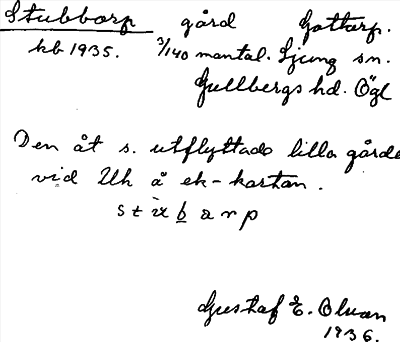 Stubbarp gård Gottorp.
kb 1935. 3/140 mantal. Ljung sn.
Gullbergs hd. Ögl
Den åt s. utflyttade lilla gården
vid Uh å ek-kartan.
s t ù b a r p
Gustaf E. Olson
1936.